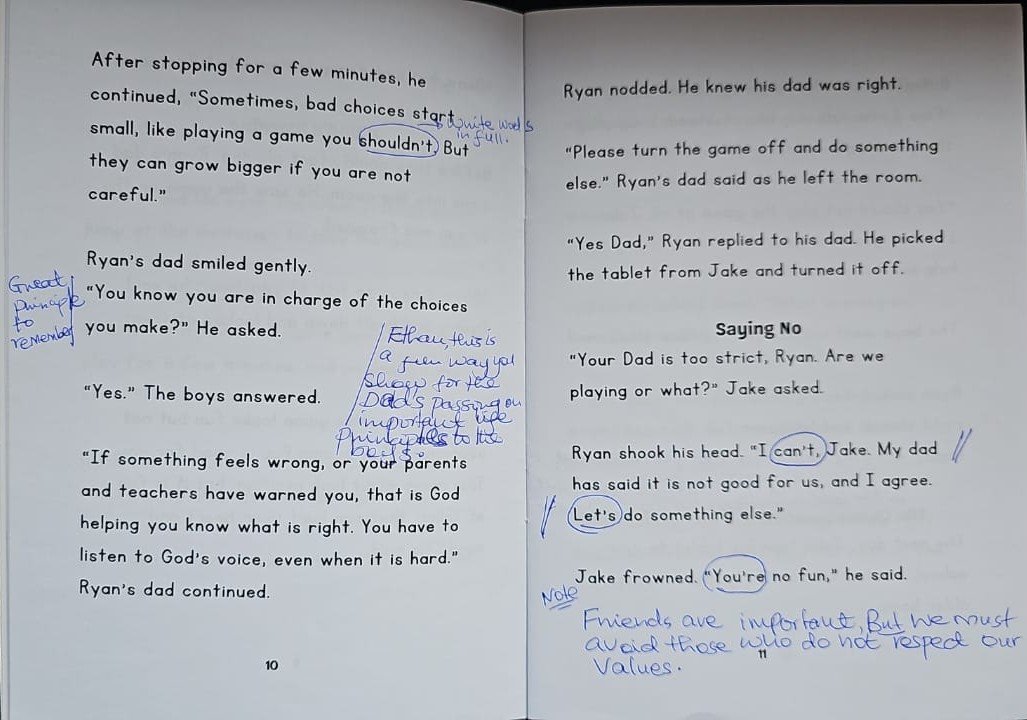 After stopping for a few minutes, he
continued, “Sometimes, bad choices start
small, like playing a game you shouldn’t. But
they can grow bigger if you are not
careful.”
Write words
in full.
Ryan’s dad smiled gently.
“You know you are in charge of the choices
you make?” He asked.
Great
principle
to
remember
“Yes.” The boys answered.
Ethan, this is
a fun way you
show for the
Dad's passing on
important life
principles to the
boys.
“If something feels wrong, or your parents
and teachers have warned you, that is God
helping you know what is right. You have to
listen to God’s voice, even when it is hard.”
Ryan’s dad continued.
10
Ryan nodded. He knew his dad was right.
“Please turn the game off and do something
else.” Ryan’s dad said as he left the room.
“Yes Dad,” Ryan replied to his dad. He picked
the tablet from Jake and turned it off.
Saying No
“Your Dad is too strict, Ryan. Are we
playing or what?” Jake asked.
Ryan shook his head. “I can’t, Jake. My dad
has said it is not good for us, and I agree.
Let’s do something else.”
Jake frowned. “You’re no fun,” he said.
Note
Friends are important, But we must
avoid those who do not respect our
values.
11